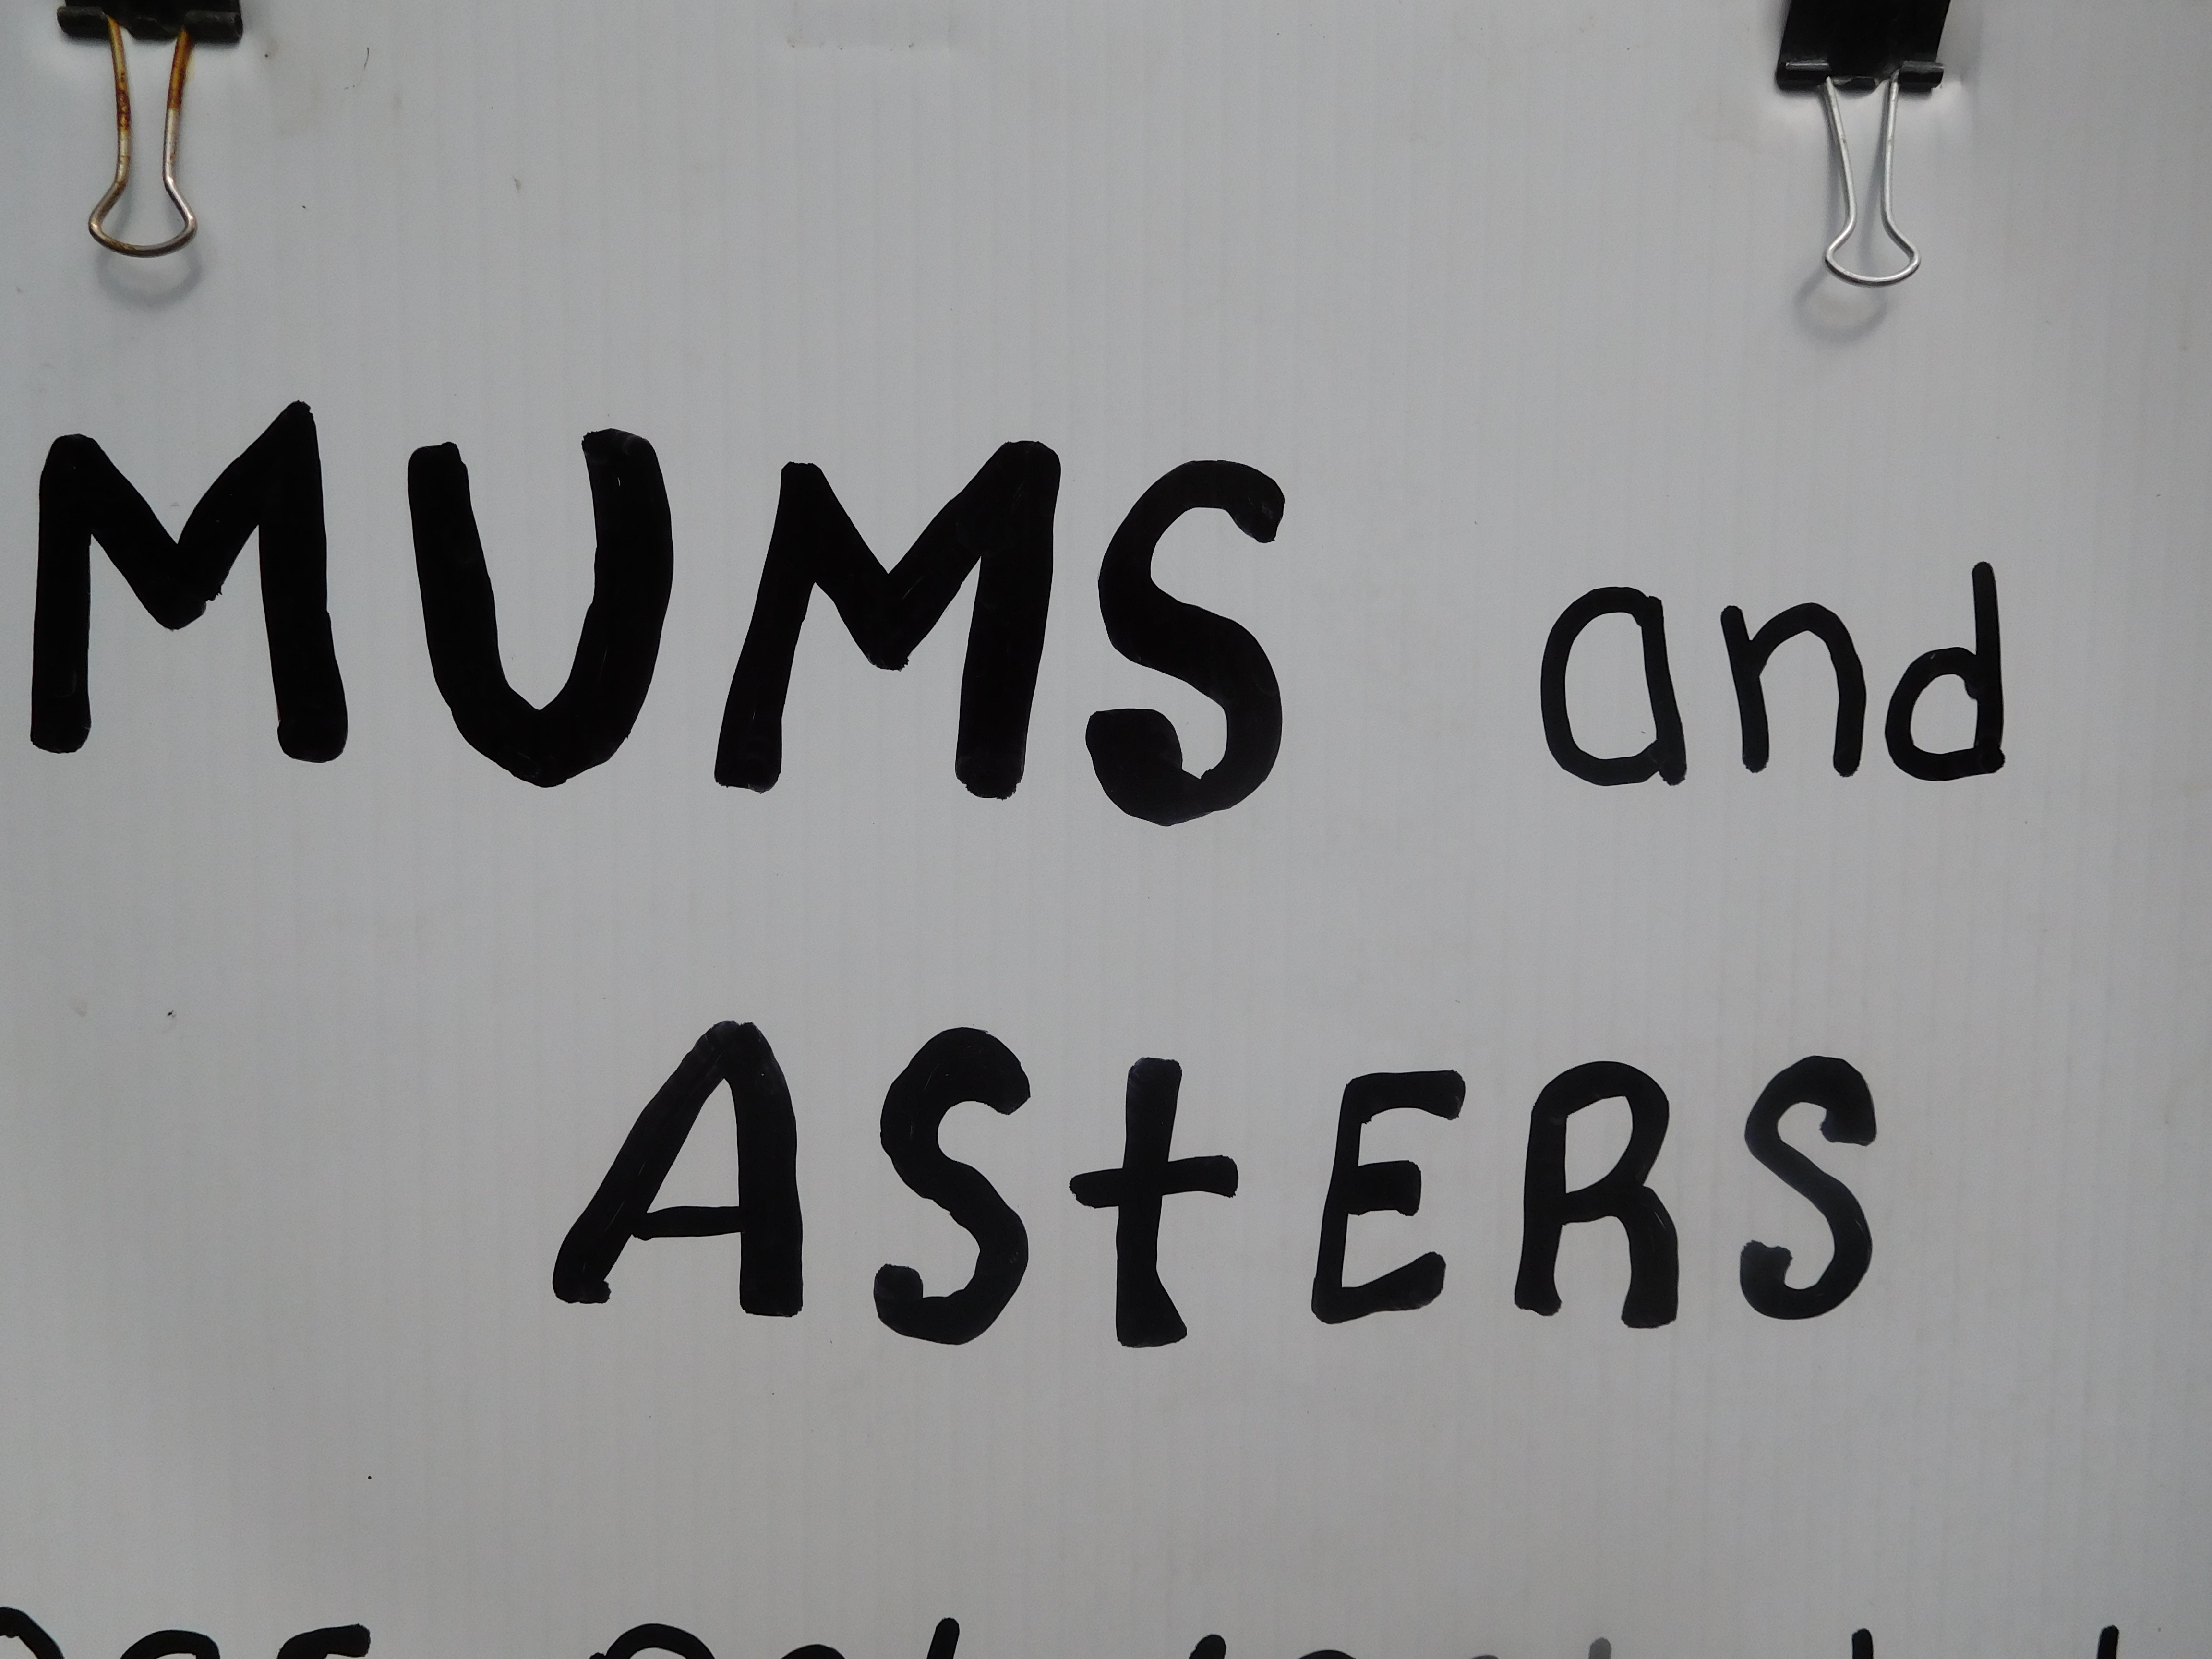 MUMS and
AStERS